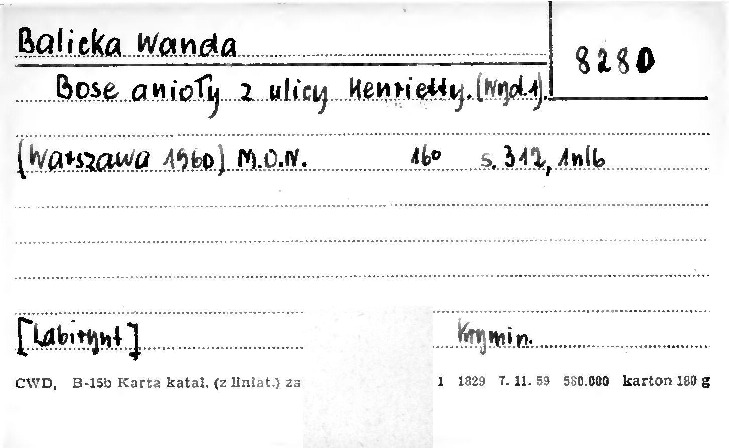 Balicka Wanda
8280
Bose anioły z ulicy Henrietty. (Wyd. 1).
(Warszawa 1960) M.O.N. 16° s. 312, 1nlb
[Labirynt] Krymin.
CWD, B-15b Karta katal. (z liniat.) za 1 1829 7. 11. 59 580.000 karton 180 g